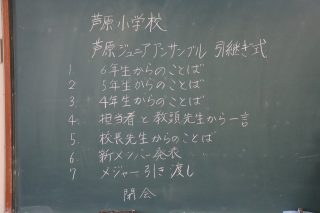 芦原小学校
芦原ジュニアアンサンブル 引継ぎ式
1 6年生からのことば
2 5年生からのことば
3 4年生からのことば
4. 担当者と教頭先生から一言
5. 校長先生からのことば
6. 新メンバー発表
7 メジャー引き渡し
閉会